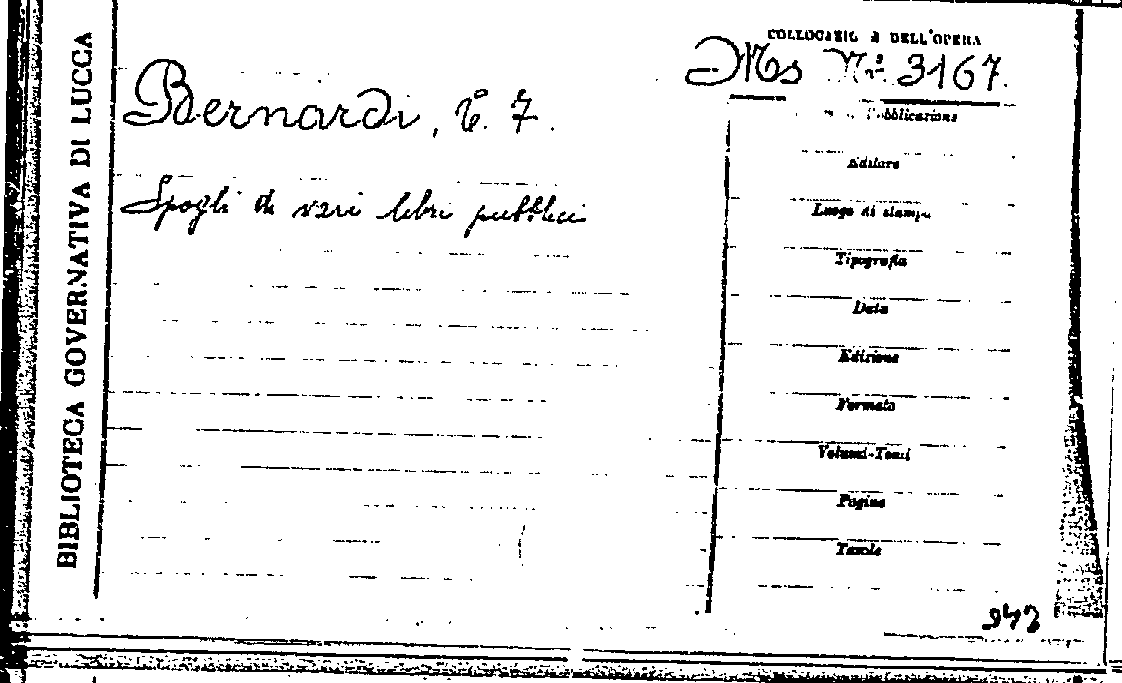 BIBLIOTECA GOVERNATIVA DI LUCCA
COLLOCAZIONE DELL'OPERA
Ms N.° 3167.
Bernardi, T. 7.
Spogli di vari libri pubblici
Pubblicazione
Editore
Luogo di stampa
Tipografia
Data
Edizione
Formato
Volumi-Tomi
Pagine
Tavole